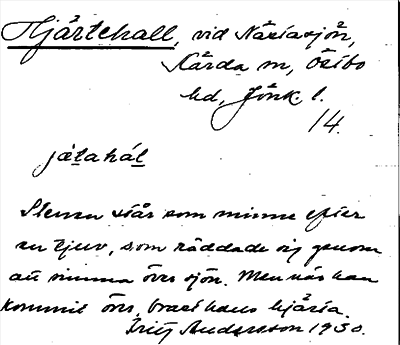 Hjärtehall, vid Näsiasjön,
Kärda sn, Östbo
hd, Jönk. l.
14.
jätahál
Stenen står som minne efter
en tjuv, som räddade sig genom
att simma över sjön. Men när han
kommit över, brast hans hjärta.
Fritz Andersson 1930.